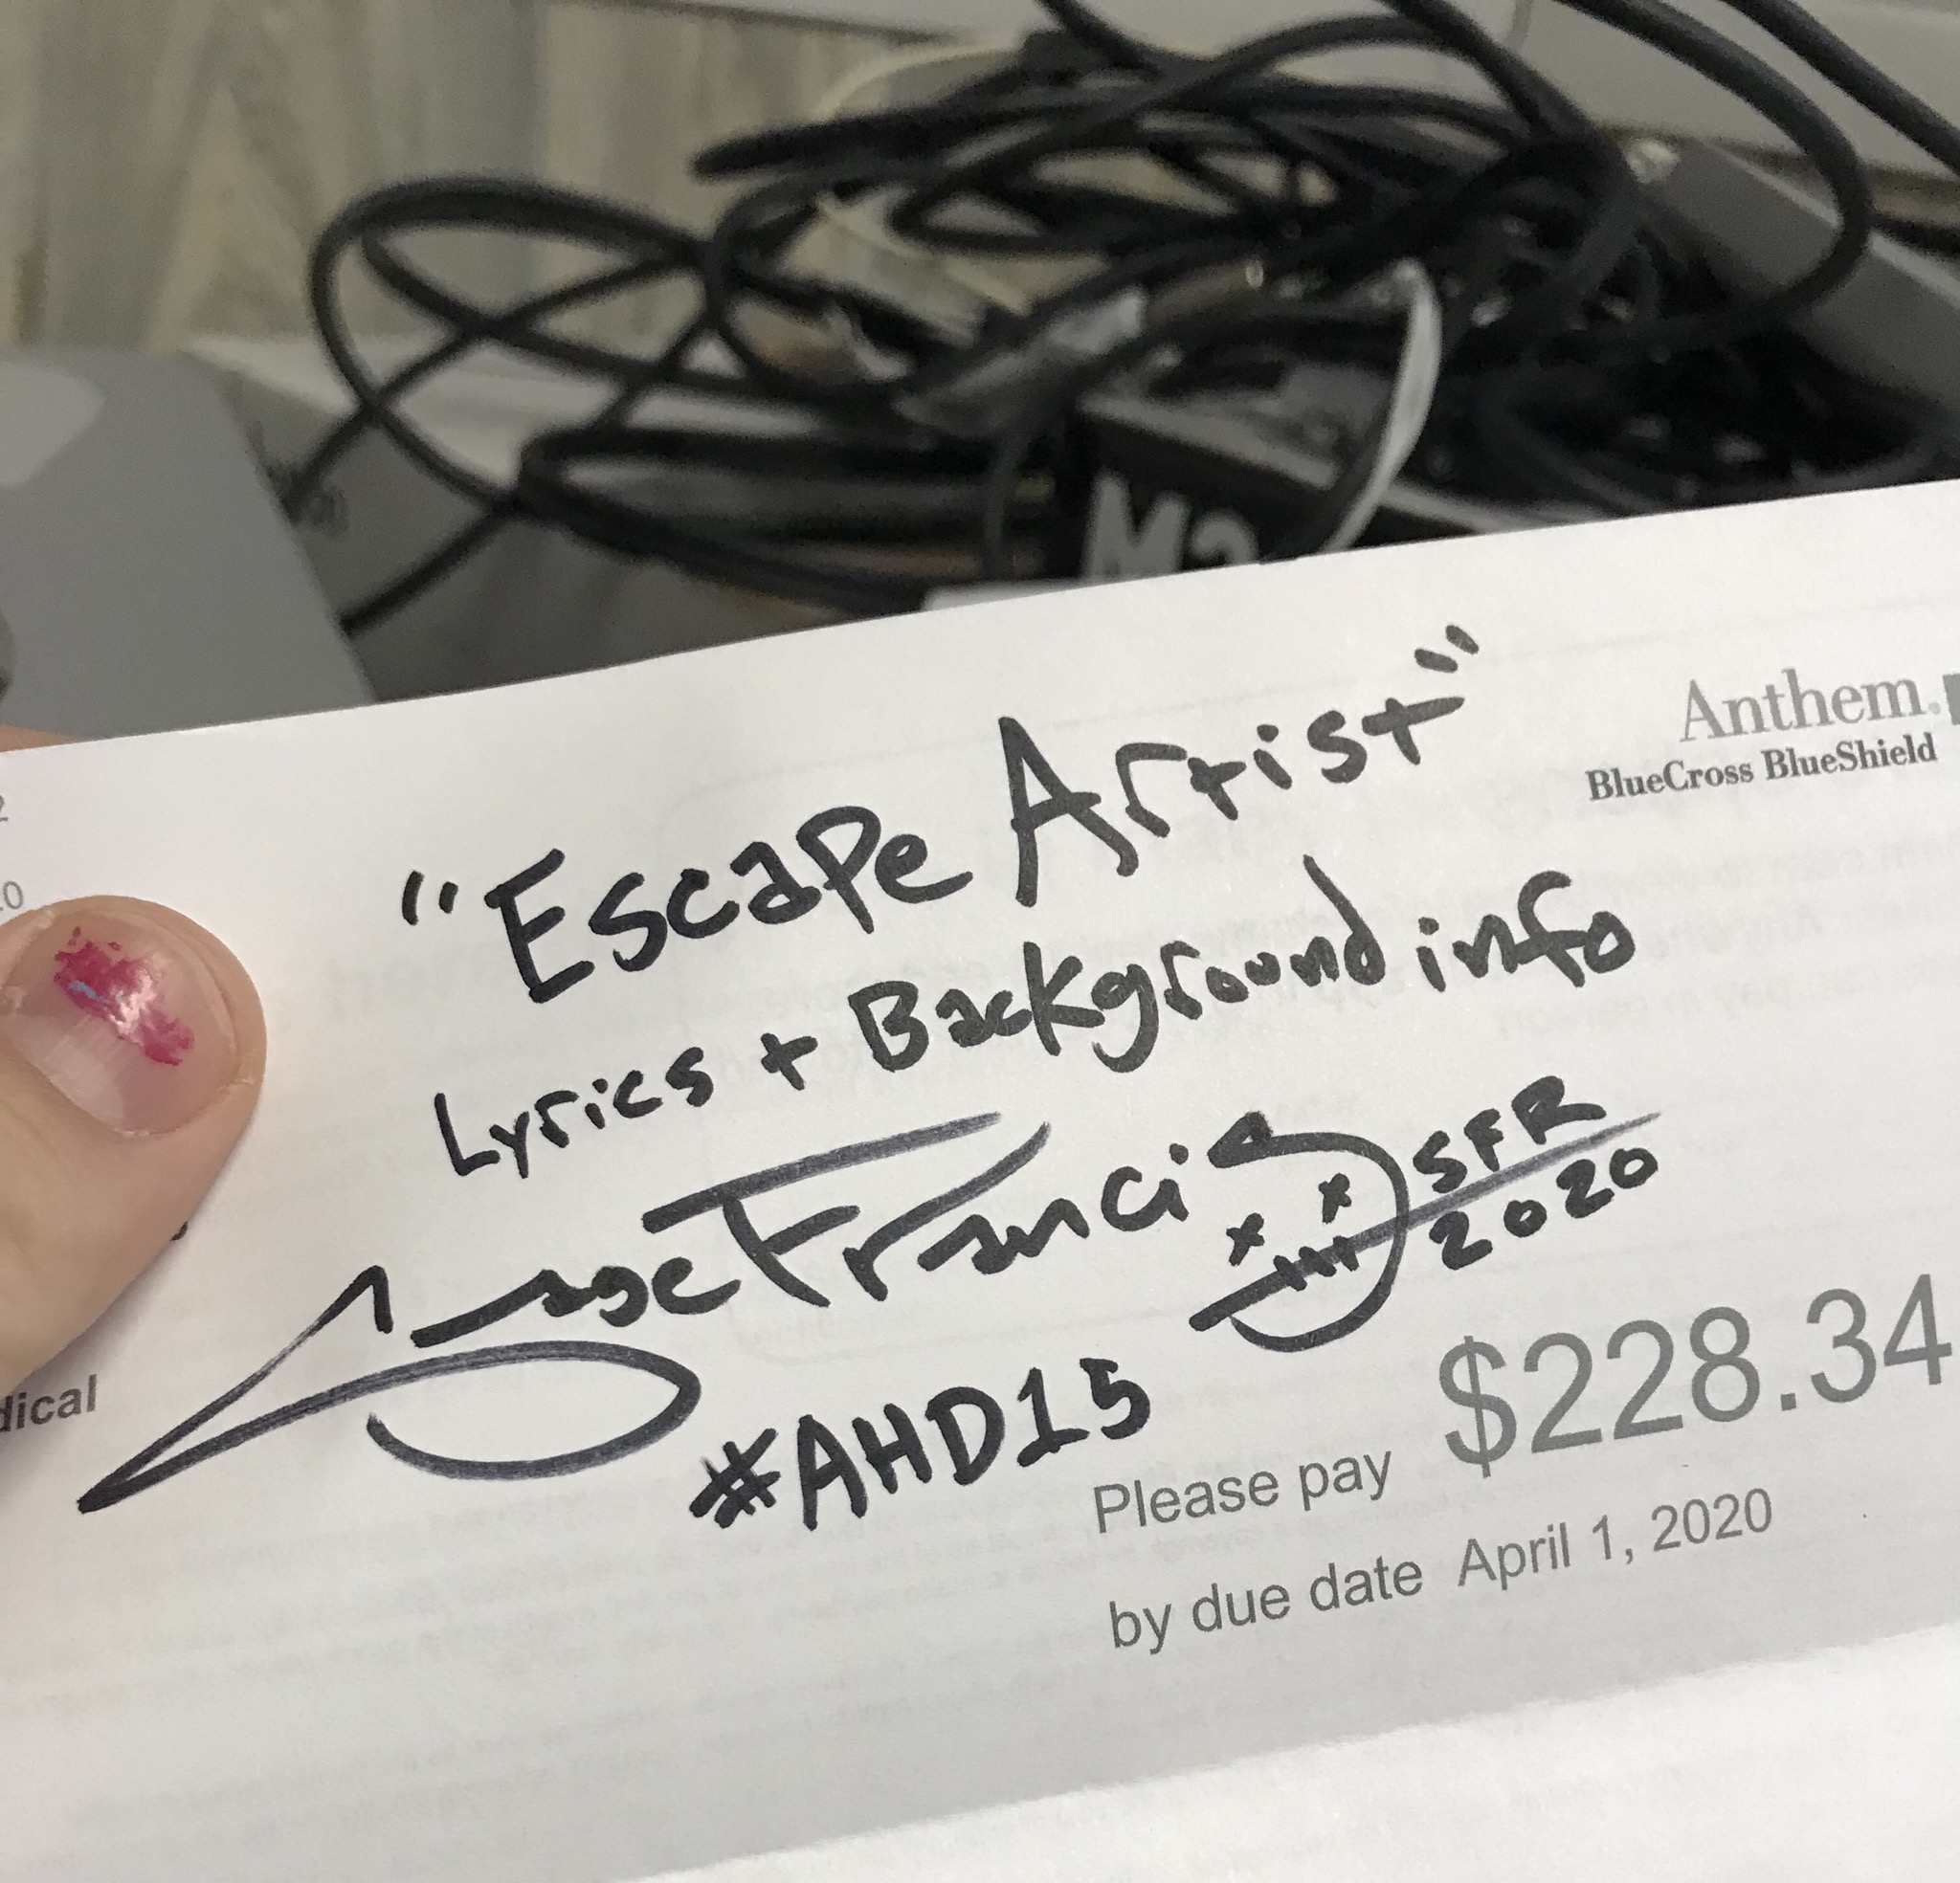 M2
Anthem.
BlueCross BlueShield
"Escape Artist"
Lyrics + Background info
Sage Francis
SFR
2020
#AHD15
dical
Please pay $228.34
by due date April 1, 2020